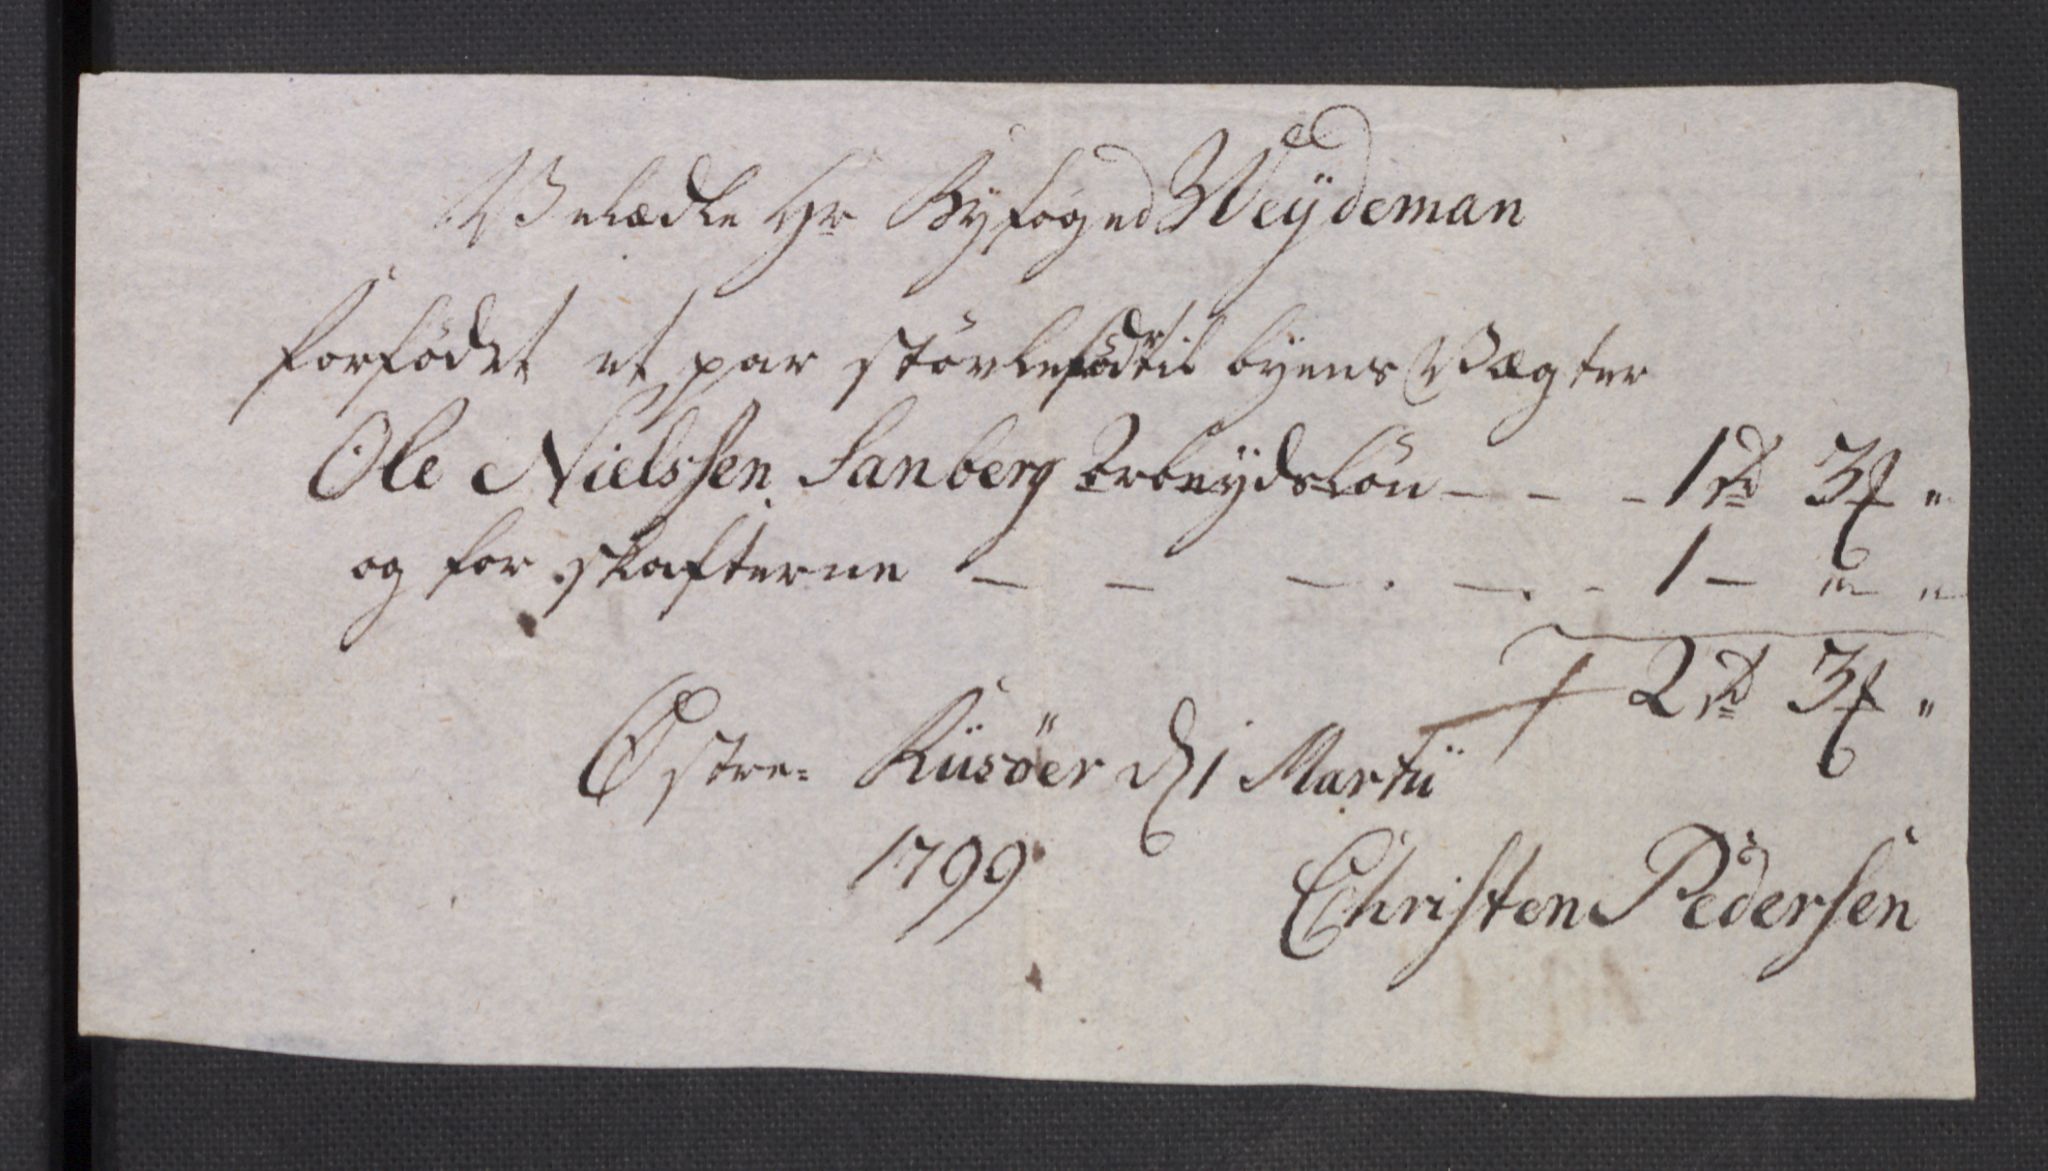 Velædle Hr Byfoged Weÿdeman
forfødet et par støvlefødr til byens Vægter
Ole Nielssen Sanberg Arbeydsløn - - - 1 rd 3 f "
og for skafterne - - - - - 1 - " "
2 rd 3 f "
Østre= Riisöer d 1 Martii
1799
Christen Pedersen